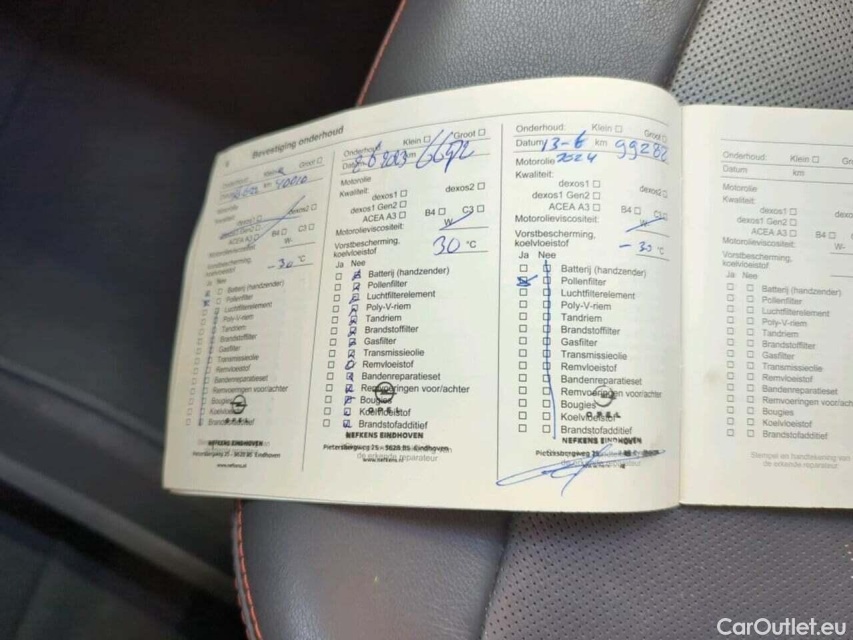 Bevestiging onderhoud
Onderhoud Klein Groot
km
Motorolie
Kwaliteit:
dexos1 dexos2
dexos1 Gen2
ACEA A3 B4 C3
Motorolieviscositeit: W-
Vorstbescherming,
koelvloeistof -30 °C
Ja Nee
Batterij (handzender)
Pollenfilter
Luchtfilterelement
Poly-V-riem
Tandriem
Brandstoffilter
Gasfilter
Transmissieolie
Remvloeistof
Bandenreparatieset
Remvoeringen voor/achter
Bougies
Koelvloeistof
Brandstofadditief
OPEL
NEFKENS EINDHOVEN
www.nefkens.nl
Onderhoud: Klein Groot
Datum 8-6 2023 km
Motorolie
Kwaliteit:
dexos1 dexos2
dexos1 Gen2
ACEA A3 B4 C3
Motorolieviscositeit: W-
Vorstbescherming,
koelvloeistof 30 °C
Ja Nee
Batterij (handzender)
Pollenfilter
Luchtfilterelement
Poly-V-riem
Tandriem
Brandstoffilter
Gasfilter
Transmissieolie
Remvloeistof
Bandenreparatieset
Remvoeringen voor/achter
Bougies
Koelvloeistof
Brandstofadditief
OPEL
NEFKENS EINDHOVEN
Eindhoven
de erkende reparateur
www.nefkens.nl
Onderhoud: Klein Groot
Datum 13-6 km 99282
Motorolie 2024
Kwaliteit:
dexos1 dexos2
dexos1 Gen2
ACEA A3 B4 C3
Motorolieviscositeit: W-
Vorstbescherming,
koelvloeistof -30 °C
Ja Nee
Batterij (handzender)
Pollenfilter
Luchtfilterelement
Poly-V-riem
Tandriem
Brandstoffilter
Gasfilter
Transmissieolie
Remvloeistof
Bandenreparatieset
Remvoeringen voor/achter
Bougies
Koelvloeistof
Brandstofadditief
OPEL
NEFKENS EINDHOVEN
Onderhoud: Klein Groot
Datum km
Motorolie
Kwaliteit:
dexos1
dexos1 Gen2
ACEA A3 B4
Motorolieviscositeit:
Vorstbescherming,
koelvloeistof
Ja Nee
Batterij (handzender)
Pollenfilter
Luchtfilterelement
Poly-V-riem
Tandriem
Brandstoffilter
Gasfilter
Transmissieolie
Remvloeistof
Bandenreparatieset
Remvoeringen voor/ach
Bougies
Koelvloeistof
Brandstofadditief
Stempel en handtekening van
de erkende reparateur
CarOutlet.eu